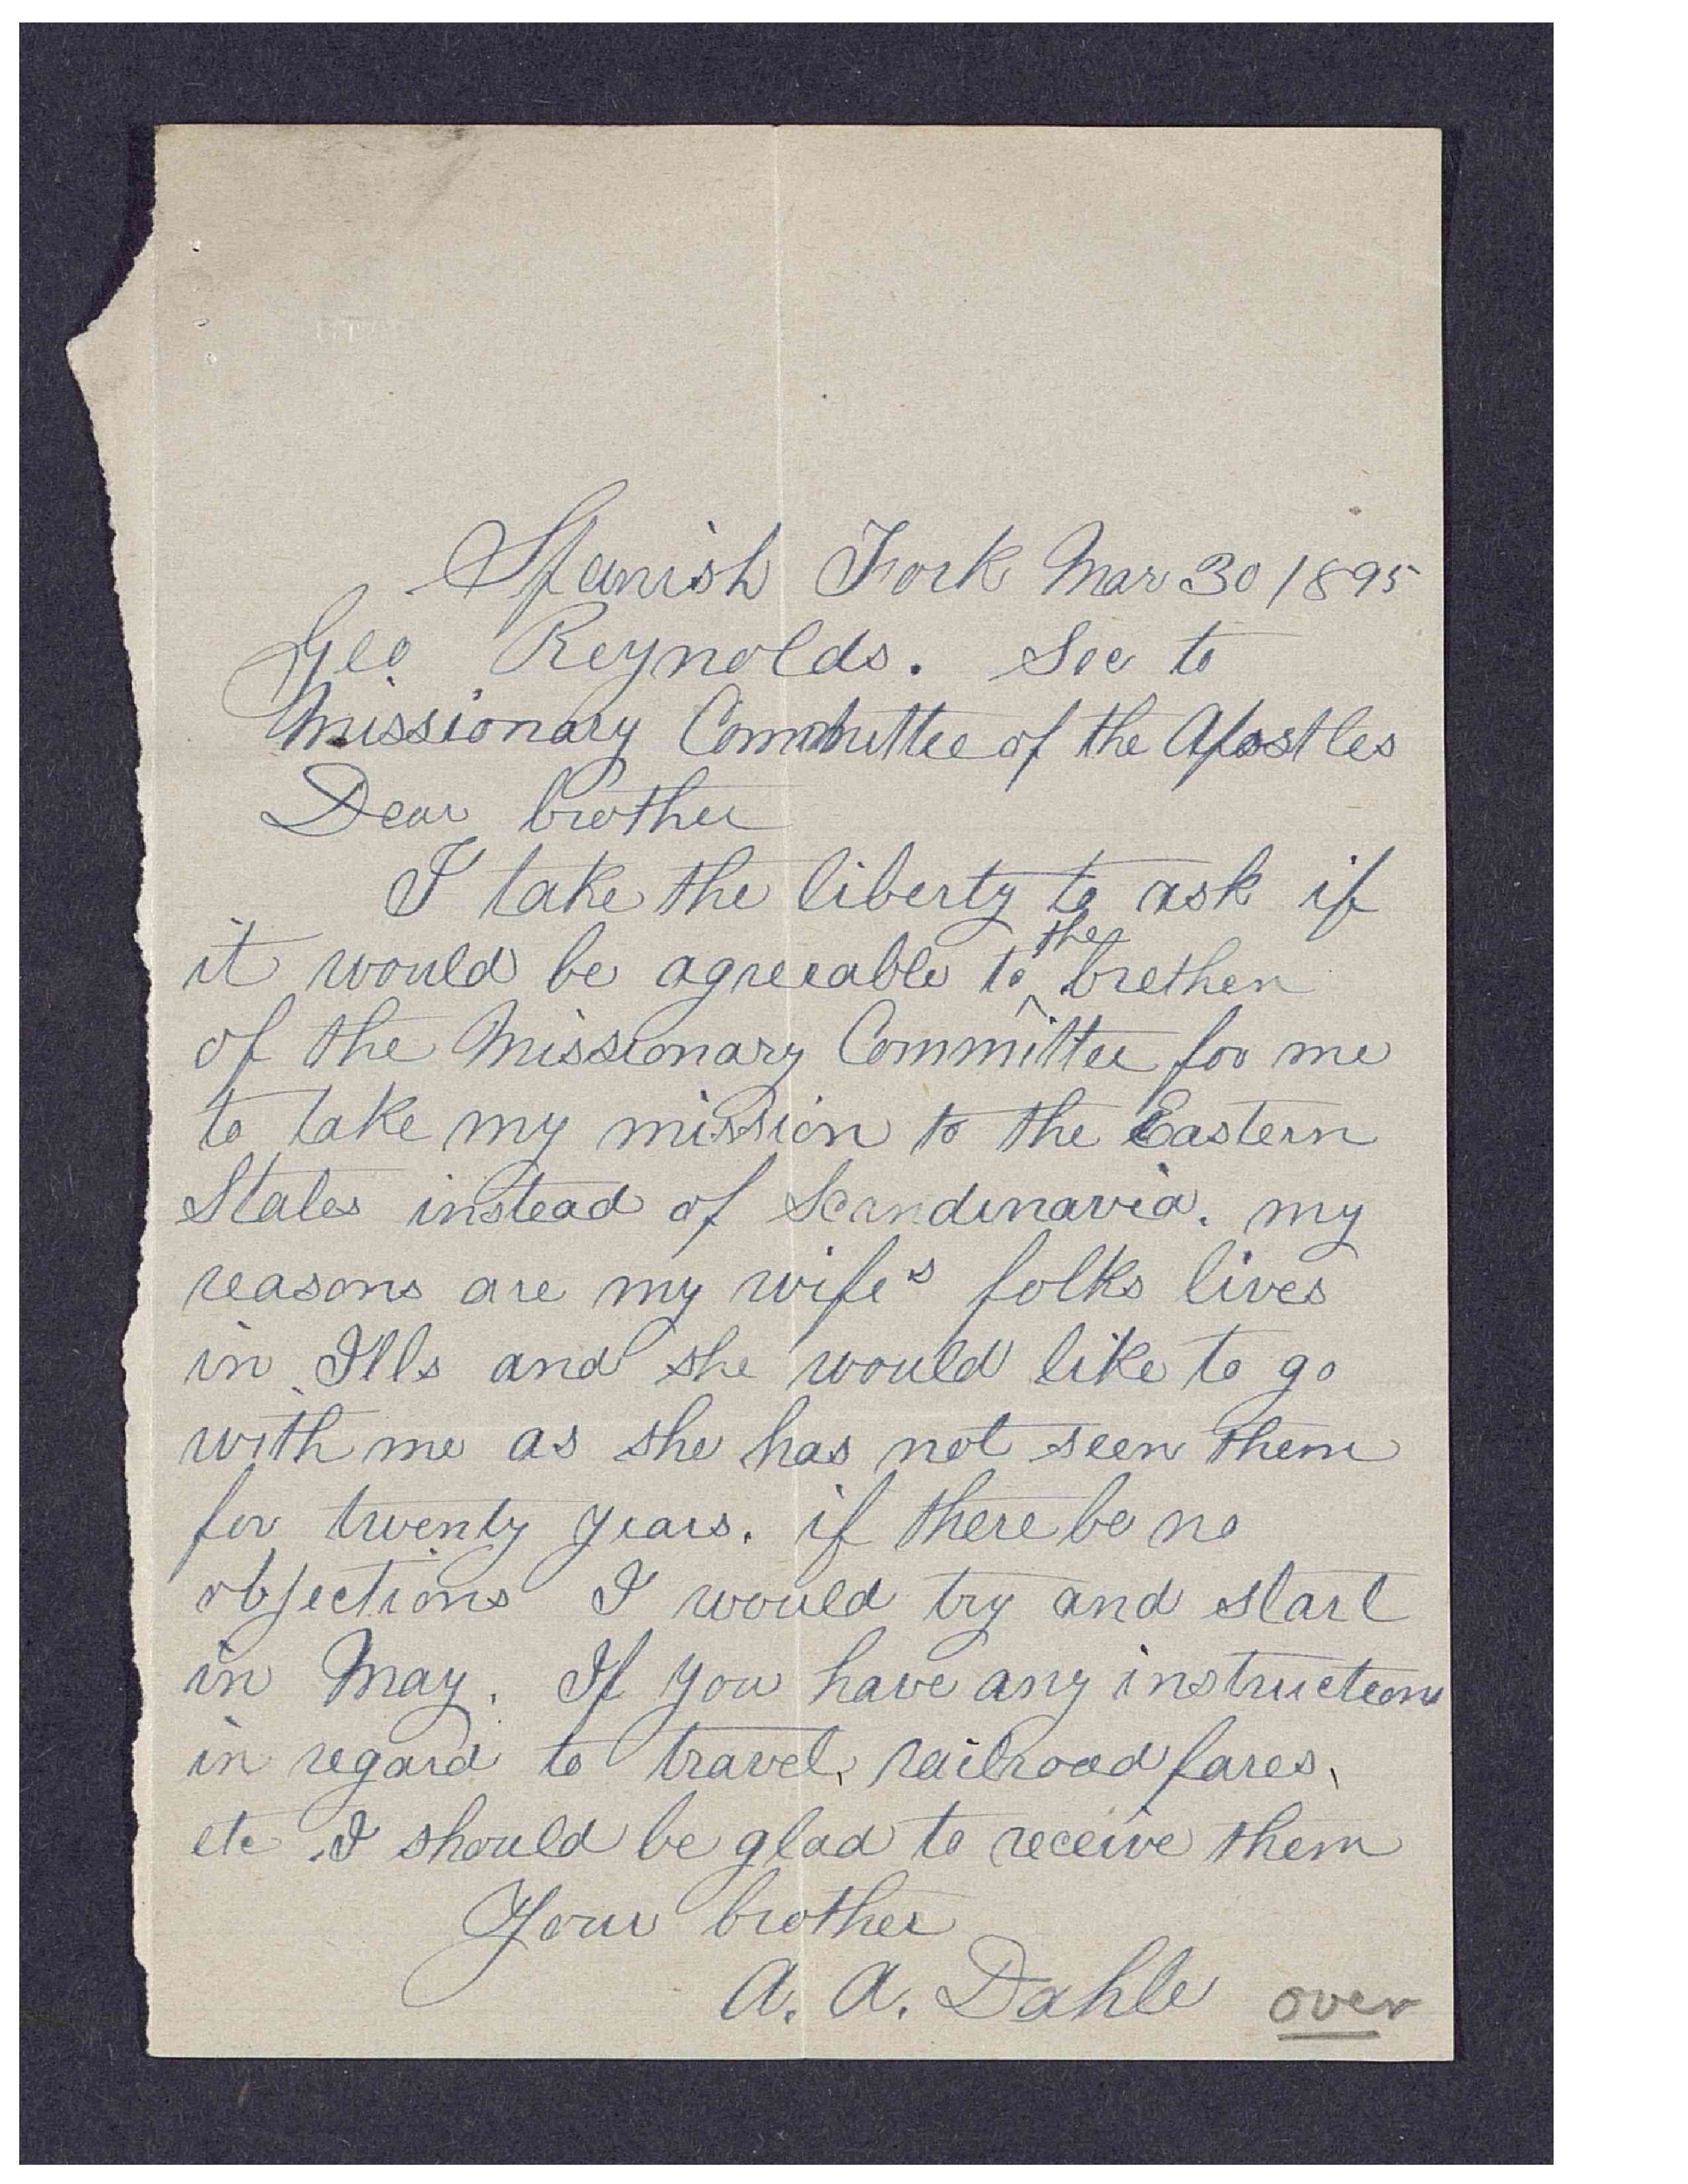 Spanish Fork Mar 30 1895
Geo Reynolds. Sec to
Missionary Committee of the Apostles
Dear brother
I take the liberty to ask if
it would be agreeable to the brethen
of the Missionary Committee for me
to take my mission to the Eastern
States instead of Scandinavia. my
reasons are my wife's folks lives
in Ills and she would like to go
with me as she has not seen them
for twenty years. if there be no
objections I would try and start
in May. If you have any instructions
in regard to travel, railroad fares,
etc. I should be glad to receive them
Your brother
A. A. Dahle
over